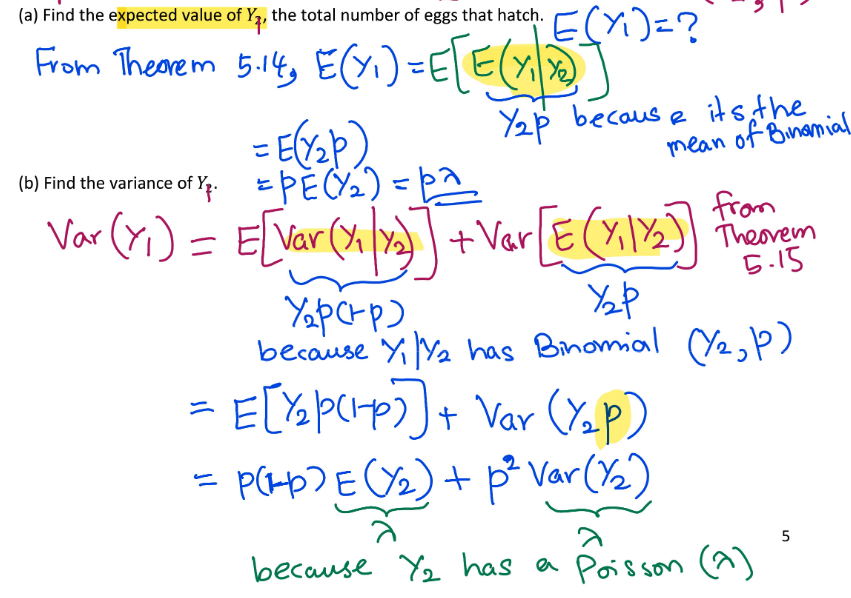 (a) Find the expected value of Y₁, the total number of eggs that hatch. E(Y₁)=?
From Theorem 5.14, E(Y₁) = E[E(Y₁|Y₂)]
Y₂p because its the
mean of Binomial
= E(Y₂p)
= pE(Y₂) = pλ
(b) Find the variance of Y₁.
Var(Y₁) = E[Var(Y₁|Y₂)] + Var[E(Y₁|Y₂)] from
Theorem
5.15
Y₂p(1-p) Y₂p
because Y₁|Y₂ has Binomial (Y₂, p)
= E[Y₂p(1-p)] + Var(Y₂p)
= p(1-p) E(Y₂) + p² Var(Y₂)
λ λ
5
because Y₂ has a Poisson (λ)